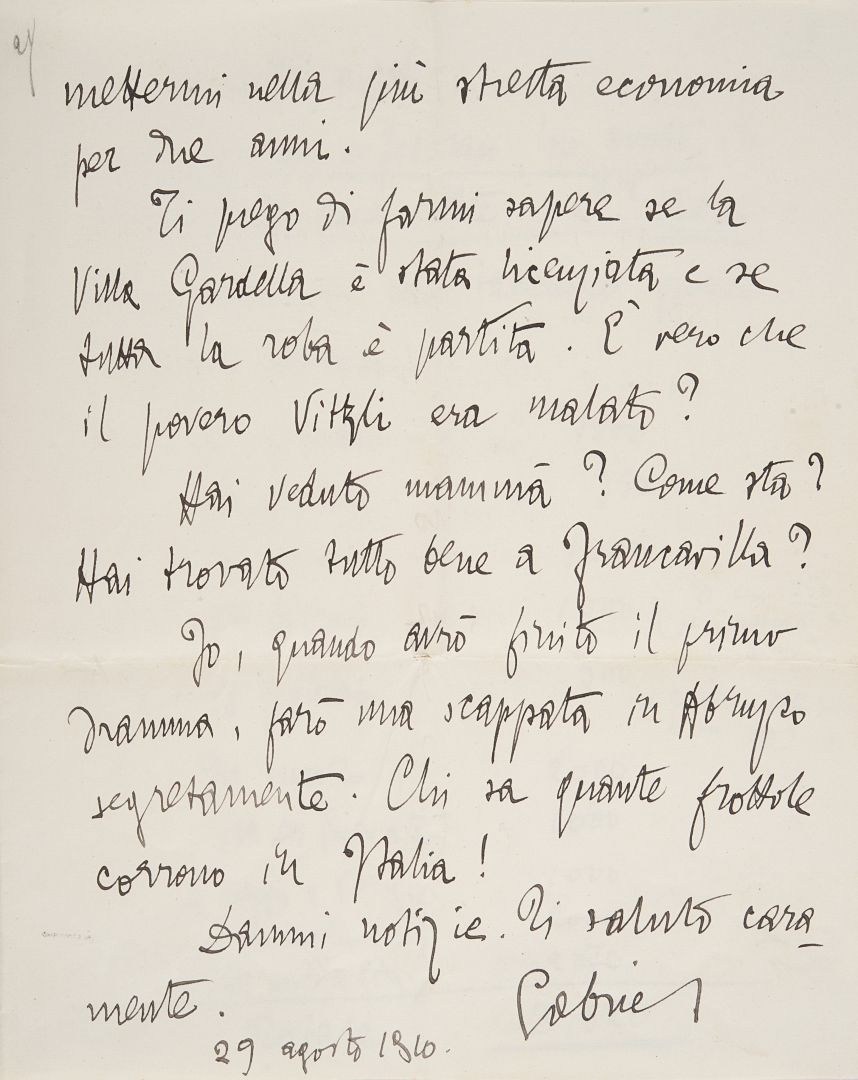 mettermi nella più stretta economia
per due anni.
Ti prego di farmi sapere se la
Villa Gardella è stata licenziata e se
tutta la roba è partita. È vero che
il povero Vitzli era malato?
Hai veduto mammà? Come sta?
Hai trovato tutto bene a Francavilla?
Io, quando avrò finito il primo
dramma, farò una scappata in Abruzzo
segretamente. Chi sa quante frottole
corrono in Italia!
Dammi notizie. Ti saluto cara
mente.
Gabriel
29 agosto 1910.